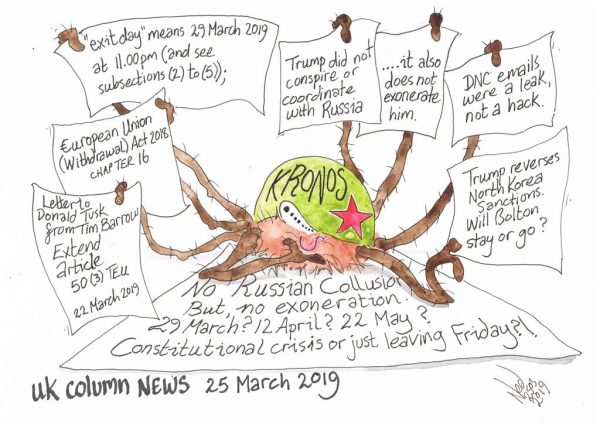 "exit day" means 29 March 2019
at 11.00pm (and see
subsections (2) to (5));
Trump did not
conspire or
coordinate
with Russia
....it also
does not
exonerate
him.
DNC emails
were a leak,
not a hack.
European Union
(Withdrawal) Act 2018
CHAPTER 16
Letter to
Donald Tusk
from Tim Barrow
Extend
article
50 (3) TEU
22 March 2019
KRONOS
Trump reverses
North Korea
Sanctions.
Will Bolton
stay or go?
No Russian Collusion
But, no exoneration.
29 March? 12 April? 22 May?
Constitutional crisis or just leaving Friday?!
UK COLUMN NEWS 25 March 2019
2019